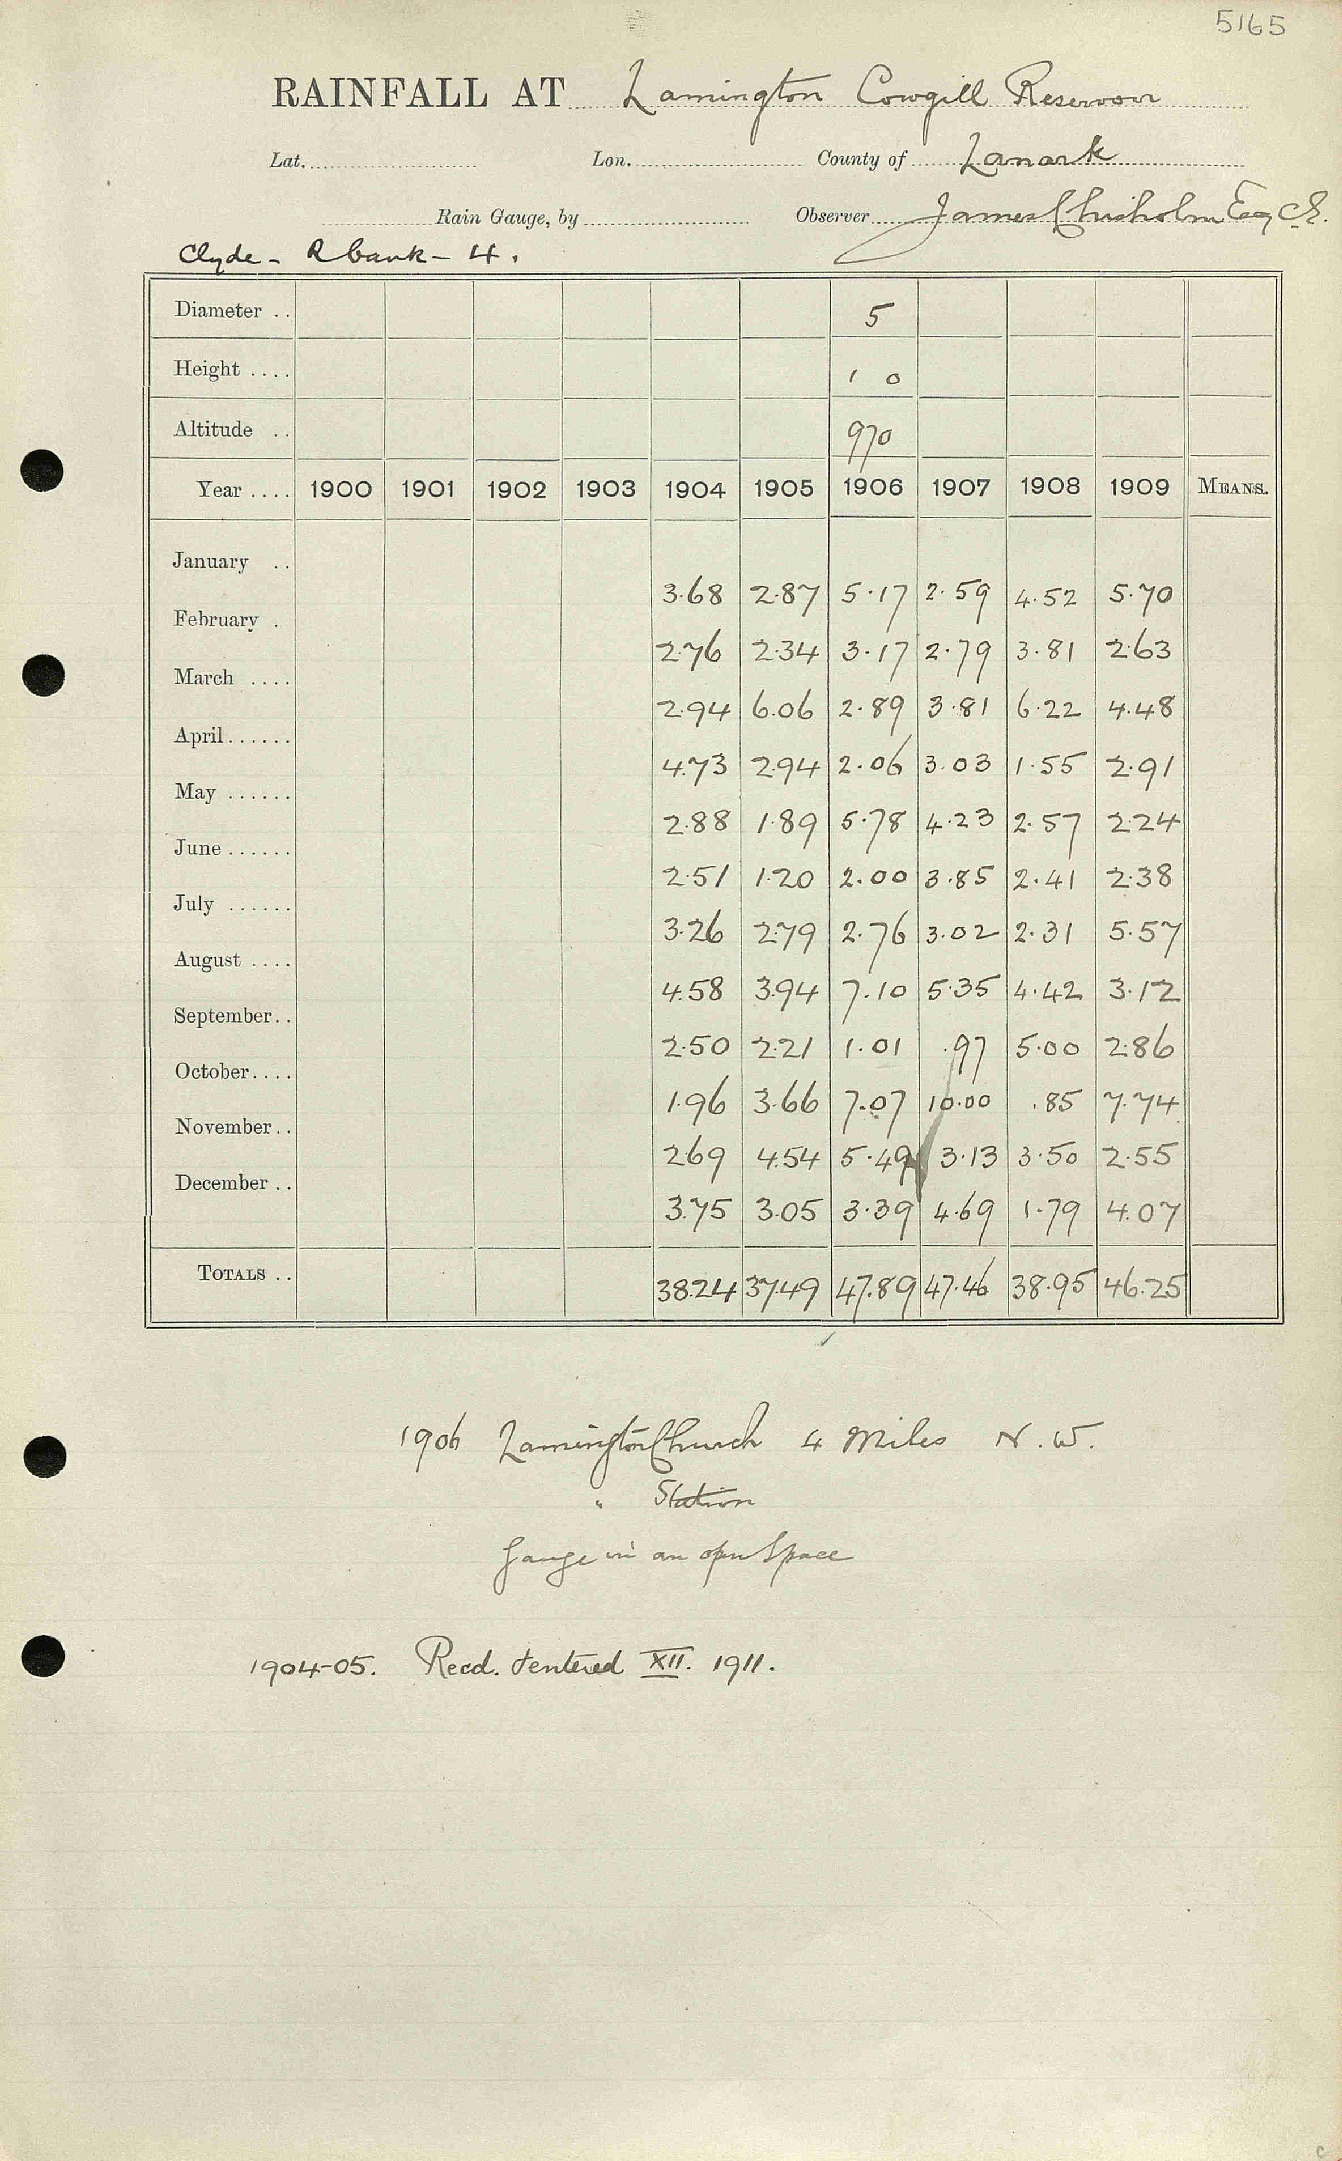 5165
RAINFALL AT Lamington Cowgill Reservoir
Lat. Lon. County of Lanark
Rain Gauge, by Observer James Chisholm Esq C.E.
Clyde - R bank - 4.
Diameter .. 5
Height .... 1 0
Altitude .. 970
Year .... 1900 1901 1902 1903 1904 1905 1906 1907 1908 1909 MEANS.
January .. 3.68 2.87 5.17 2.59 4.52 5.70
February . 2.76 2.34 3.17 2.79 3.81 2.63
March .... 2.94 6.06 2.89 3.81 6.22 4.48
April...... 4.73 2.94 2.06 3.03 1.55 2.91
May ...... 2.88 1.89 5.78 4.23 2.57 2.24
June ...... 2.51 1.20 2.00 3.85 2.41 2.38
July ...... 3.26 2.79 2.76 3.02 2.31 5.57
August .... 4.58 3.94 7.10 5.35 4.42 3.12
September.. 2.50 2.21 1.01 .97 5.00 2.86
October.... 1.96 3.66 7.07 10.00 .85 7.74
November.. 2.69 4.54 5.49 3.13 3.50 2.55
December .. 3.75 3.05 3.39 4.69 1.79 4.07
TOTALS .. 38.24 37.49 47.89 47.46 38.95 46.25
1906 Lamington Church 4 Miles N.W.
" Station
Gauge in an open space
1904-05. Recd. & entered XII. 1911.